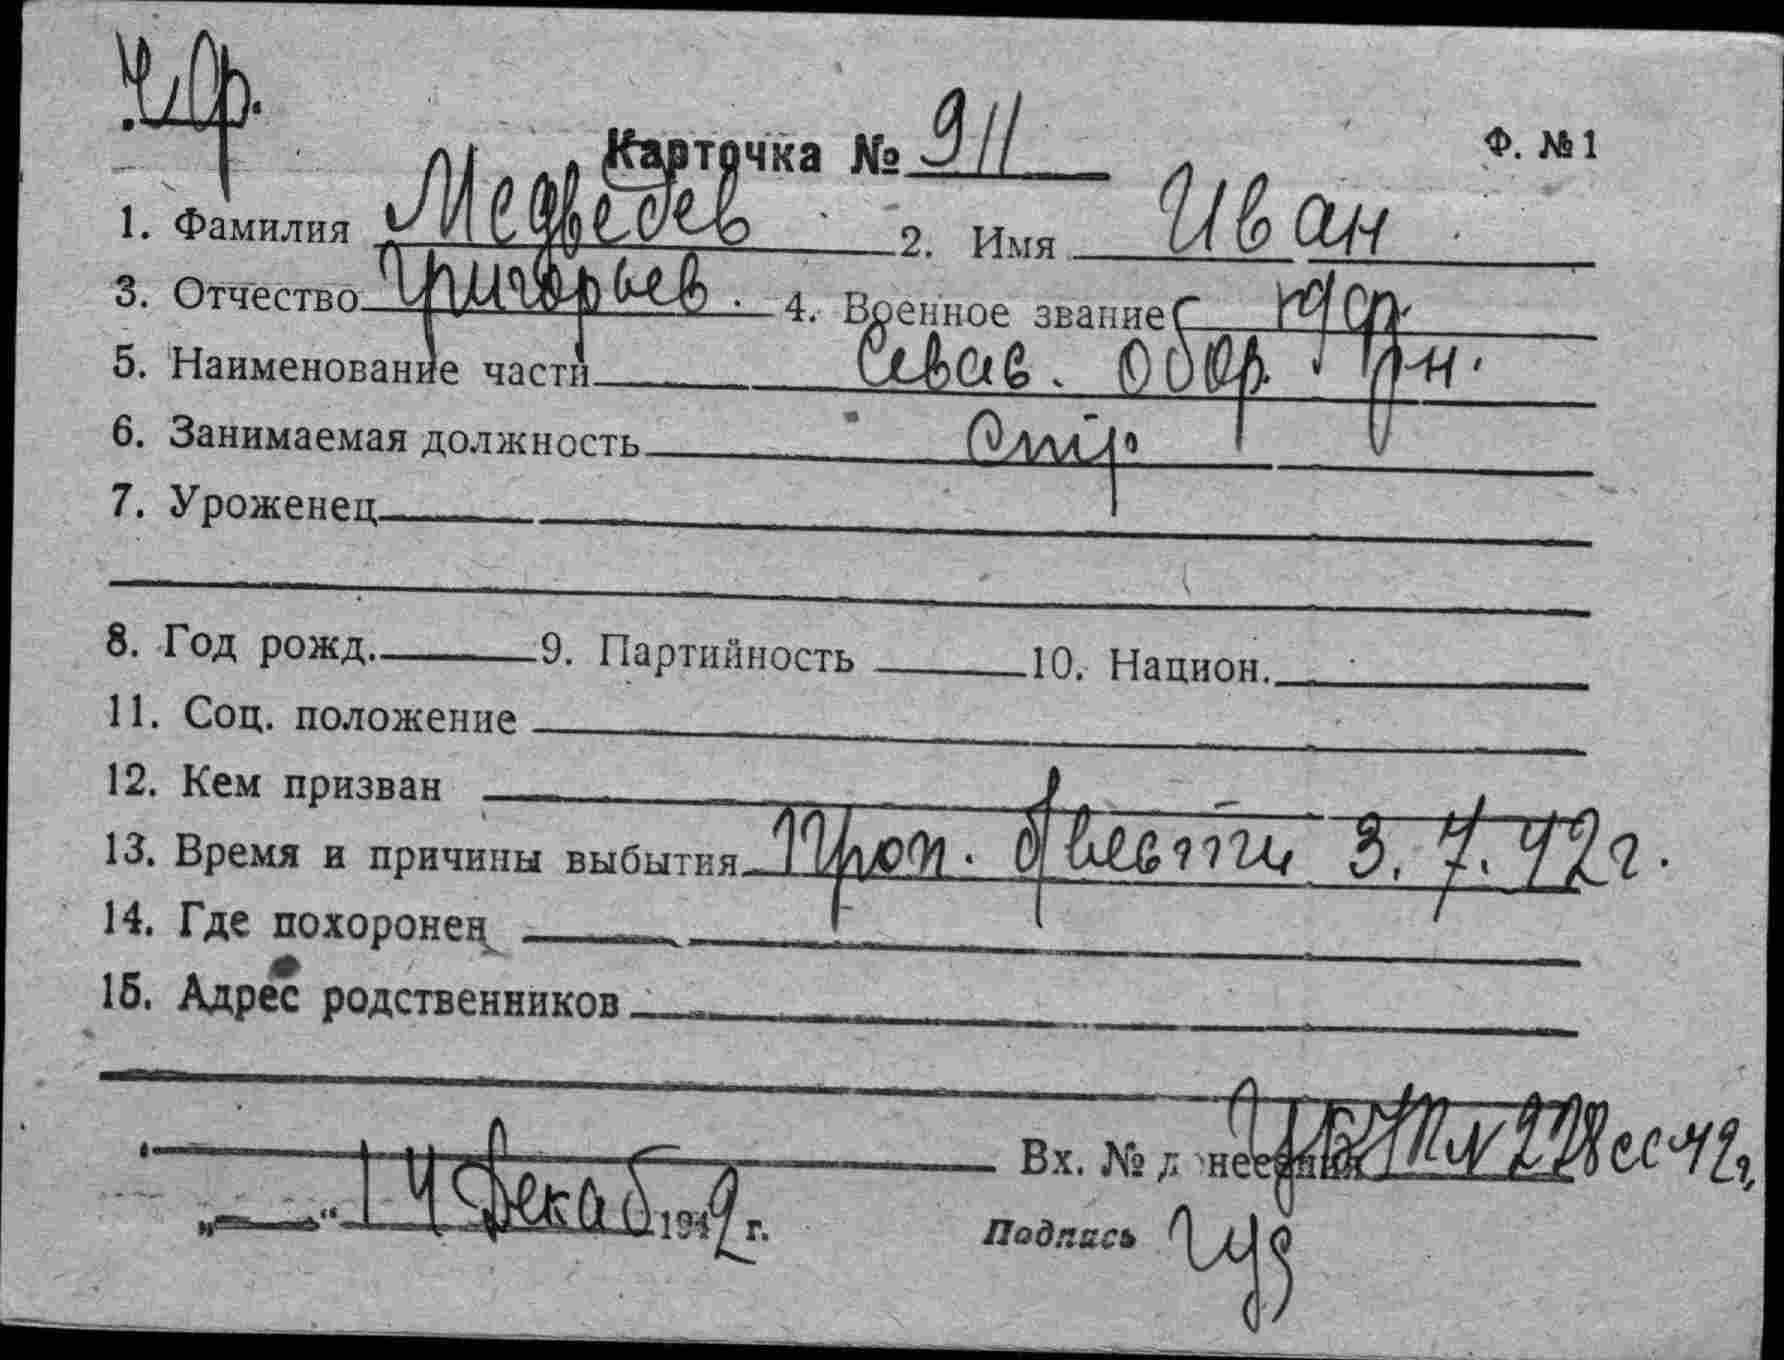 Карточка № 911 Ф. № 1
1. Фамилия Медведев 2. Имя Иван
3. Отчество Григорьев. 4. Военное звание
5. Наименование части Севас. обор. рн.
6. Занимаемая должность Стр
7. Уроженец
8. Год рожд. 9. Партийность 10. Национ.
11. Соц. положение
12. Кем призван
13. Время и причины выбытия Проп. б/вести 3.7.42г.
14. Где похоронен
15. Адрес родственников
Вх. № донесения № 228сс 42г.
„ “ 14 Декаб 1942 г. Подпись